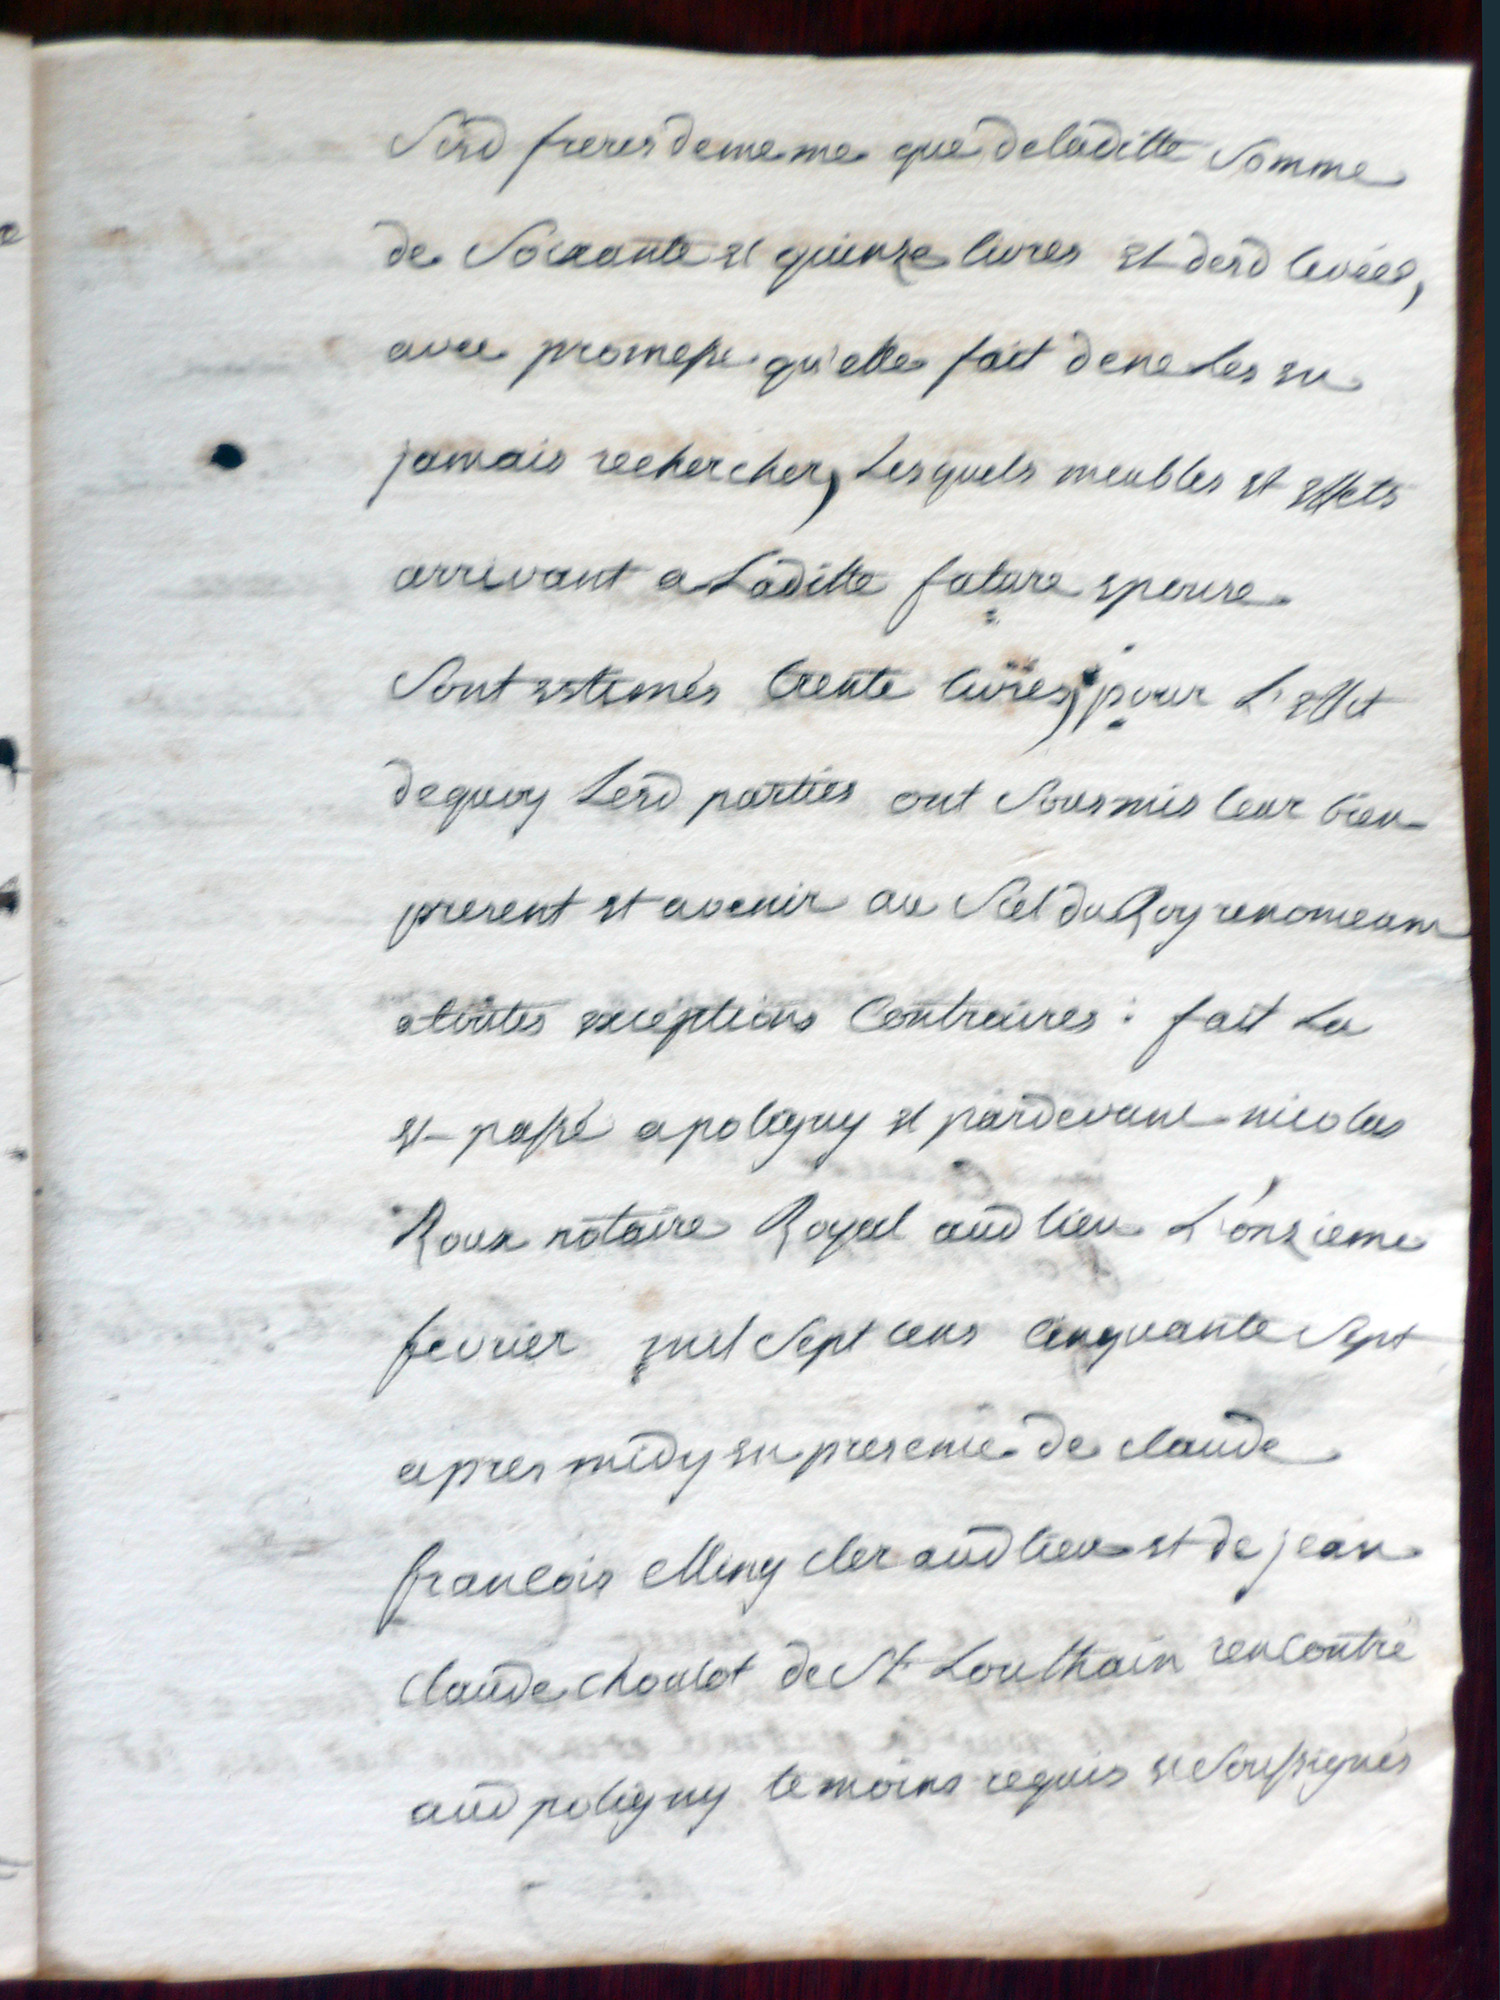 Sesd freres de meme que de laditte Somme
de Soixante et quinze livres et desd livrées,
avec promesse qu'elle fait de ne les en
jamais rechercher, Lesquels meubles et effets
arrivant a Laditte future epouse
Sont estimés trente livres, pour L'effet
de quoy Lesd parties ont Sousmis leur bien
present et avenir au Scel du Roy renonceant
a toutes exceptions Contraires : fait Lu
et passé a poligny et pardevant nicolas
Roux notaire Royal aud lieu L'onzieme
fevrier mil Sept cens Cinquante Sept
apres midy en presence de claude
francois clerc aud lieu et de jean
claude choulot de St Louthain rencontré
aud poligny temoins requis et Soussignés